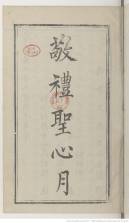 敬禮聖心月